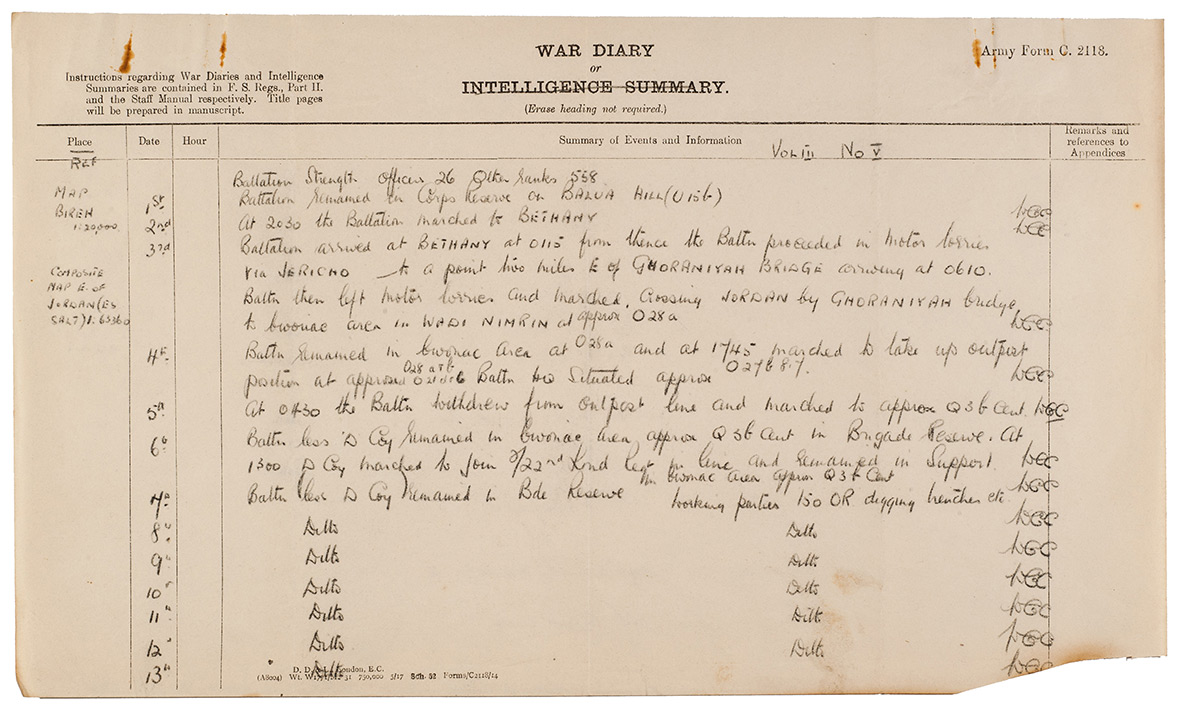 WAR DIARY
or
INTELLIGENCE SUMMARY.
(Erase heading not required.)
Army Form C. 2118.
Instructions regarding War Diaries and Intelligence
Summaries are contained in F. S. Regs., Part II.
and the Staff Manual respectively. Title pages
will be prepared in manuscript.
Place Date Hour Summary of Events and Information Remarks and references to Appendices
Vol III No V
REF
MAP
BIREH
1:20,000.
Battalion Strength Officers 26 Other Ranks 558
1st Battalion Remained in Corps Reserve on BALUA HILL (U15b)
2nd At 2030 the Battalion marched to BETHANY
3rd Battalion arrived at BETHANY at 0115 from thence the Battn proceeded in Motor lorries
via JERICHO to a point two miles E of GHORANIYAH BRIDGE arriving at 0610.
COMPOSITE
MAP E. of
JORDAN (ES
SALT) 1:63360
Battn then left Motor lorries and marched, crossing JORDAN by GHORANIYAH bridge,
to bivouac area in WADI NIMRIN at approx O28a
4th Battn remained in bivouac area at O28a and at 1745 marched to take up outpost
position at approx O28a+b Battn HQ Situated approx O27b 8.7.
5th At 0430 the Battn withdrew from outpost line and marched to approx Q3b Cent.
6th Battn less 'D Coy remained in bivouac area approx Q3b Cent in Brigade Reserve. At
1300 D Coy marched to join 2/22nd Lond Regt in line and remained in Support
7th Battn less D Coy remained in Bde Reserve in bivouac area approx Q3b Cent working parties 150 OR digging trenches etc.
8th Ditto Ditto
9th Ditto Ditto
10th Ditto Ditto
11th Ditto Ditto
12th Ditto Ditto
13th Ditto
London, E.C.
(A8004) 750,000 5/17 Sch. 52 Forms/C2118/14